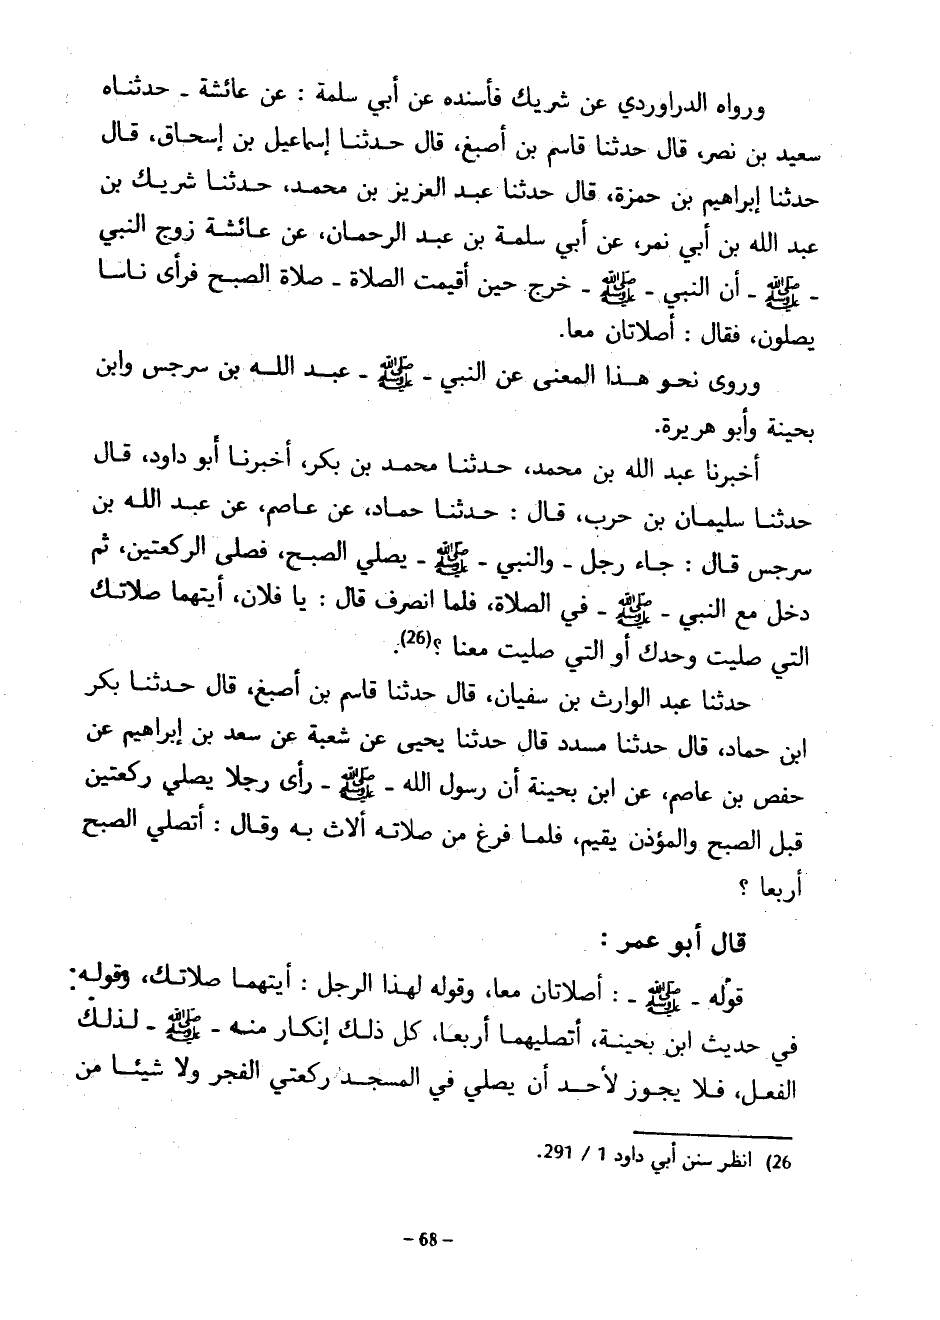 ورواه الدراوردي عن شريك فأسنده عن أبي سلمة : عن عائشة ـ حدثناه
سعيد بن نصر، قال حدثنا قاسم بن أصبغ، قال حدثنا إسماعيل بن إسحاق، قال
حدثنا إبراهيم بن حمزة، قال حدثنا عبد العزيز بن محمد، حدثنا شريك بن
عبد الله بن أبي نمر، عن أبي سلمة بن عبد الرحمان، عن عائشة زوج النبي
ـ ﷺ ـ أن النبي ـ ﷺ ـ خرج حين أقيمت الصلاة ـ صلاة الصبح فرأى ناسا
يصلون، فقال : أصلاتان معا.
وروى نحو هذا المعنى عن النبي ـ ﷺ ـ عبد الله بن سرجس وابن
بحينة وأبو هريرة.
أخبرنا عبد الله بن محمد، حدثنا محمد بن بكر، أخبرنا أبو داود، قال
حدثنا سليمان بن حرب، قال : حدثنا حماد، عن عاصم، عن عبد الله بن
سرجس قال : جاء رجل ـ والنبي ـ ﷺ ـ يصلي الصبح، فصلى الركعتين، ثم
دخل مع النبي ـ ﷺ ـ في الصلاة، فلما انصرف قال : يا فلان، أيتهما صلاتك
التي صليت وحدك أو التي صليت معنا ؟(26).
حدثنا عبد الوارث بن سفيان، قال حدثنا قاسم بن أصبغ، قال حدثنا بكر
ابن حماد، قال حدثنا مسدد قال حدثنا يحيى عن شعبة عن سعد بن إبراهيم عن
حفص بن عاصم، عن ابن بحينة أن رسول الله ـ ﷺ ـ رأى رجلا يصلي ركعتين
قبل الصبح والمؤذن يقيم، فلما فرغ من صلاته ألاث به وقال : أتصلي الصبح
أربعا ؟
قال أبو عمر :
قوله ـ ﷺ ـ : أصلاتان معا، وقوله لهذا الرجل : أيتهما صلاتك، وقوله:
في حديث ابن بحينة، أتصليهما أربعا، كل ذلك إنكار منه ـ ﷺ ـ لذلك
الفعل، فلا يجوز لأحد أن يصلي في المسجد ركعتي الفجر ولا شيئا من
26) انظر سنن أبي داود 1 / 291.
- 68 -